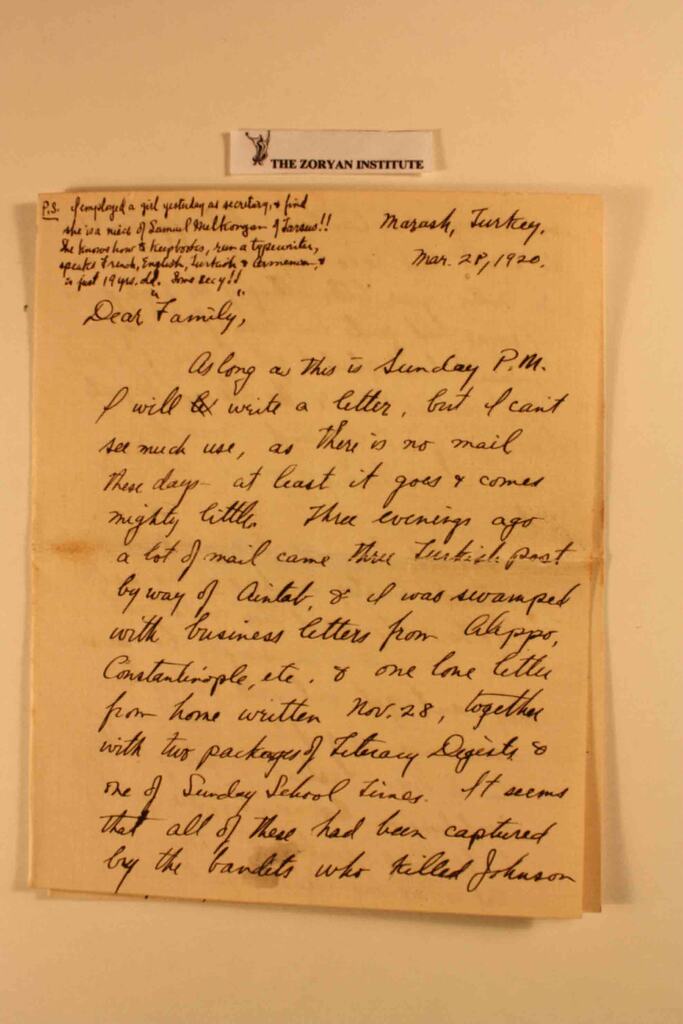 THE ZORYAN INSTITUTE
P.S. I employed a girl yesterday as secretary, & find
she is a niece of Samuel Melkonyan of Tarsus!!
She knows how to keep books, run a typewriter,
speaks French, English, Turkish & Armenian, &
is just 19 yrs. old. Some secy!!
Marash, Turkey.
Mar. 28, 1920.
Dear "Family",
As long as this is Sunday P.M.
I will write a letter, but I can't
see much use, as there is no mail
these days - at least it goes & comes
mighty little. Three evenings ago
a lot of mail came thru Turkish post
by way of Aintab, & I was swamped
with business letters from Aleppo,
Constantinople, etc. & one lone letter
from home written Nov. 28, together
with two packages of Literary Digests &
one of Sunday School Times. It seems
that all of these had been captured
by the bandits who killed Johnson